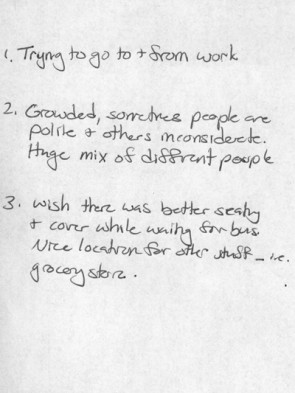 1. Tryng to go to + from work
2. Crowded, sometimes people are
polite + others inconsiderate.
Huge mix of different people
3. wish there was better seating
+ cover while waiting for bus.
Nice location for other stuff - i.e.
grocery store.